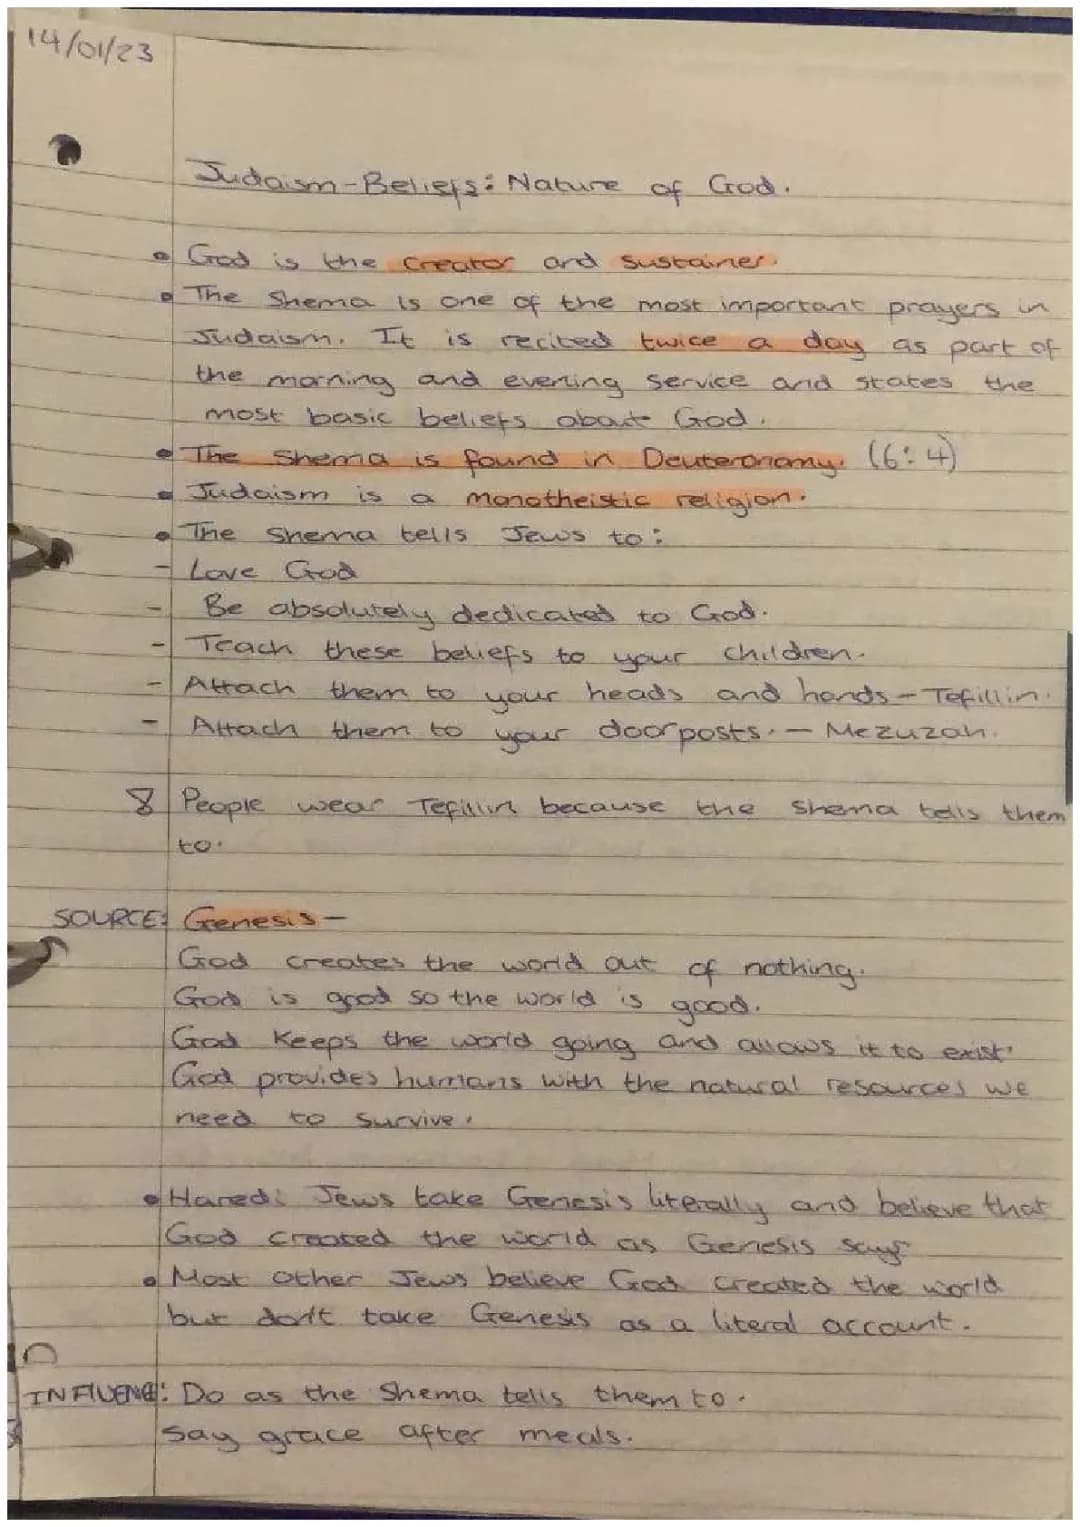 14/01/23
Judaism-Beliefs: Nature of God.
• God is the creator and sustainer.
• The Shema is one of the most important prayers in
Judaism. It is recited twice a day as part of
the morning and evening service and states the
most basic beliefs about God.
• The Shema is found in Deuteronomy. (6:4)
• Judaism is a monotheistic religion.
• The Shema tells Jews to:
- Love God
- Be absolutely dedicated to God.
- Teach these beliefs to your children.
- Attach them to your heads and hands - Tefillin.
- Attach them to your doorposts. - Mezuzah.
8 People wear Tefillin because the Shema tells them
to.
SOURCE: Genesis -
God creates the world out of nothing.
God is good so the world is good.
God keeps the world going and allows it to exist.
God provides humans with the natural resources we
need to survive.
• Haredi Jews take Genesis literally and believe that
God created the world as Genesis says.
• Most other Jews believe God created the world
but don't take Genesis as a literal account.
INFLUENCE: Do as the Shema tells them to.
Say grace after meals.